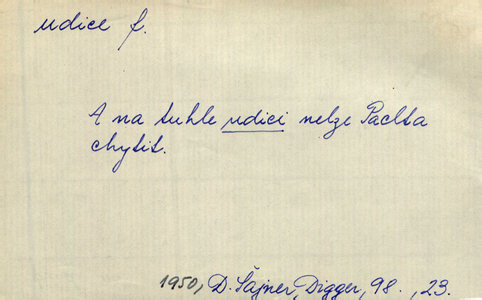 udice f.
A na tuhle udici nelze Paclta
chytit.
1950, D. Šajner, Digger, 98., 23.